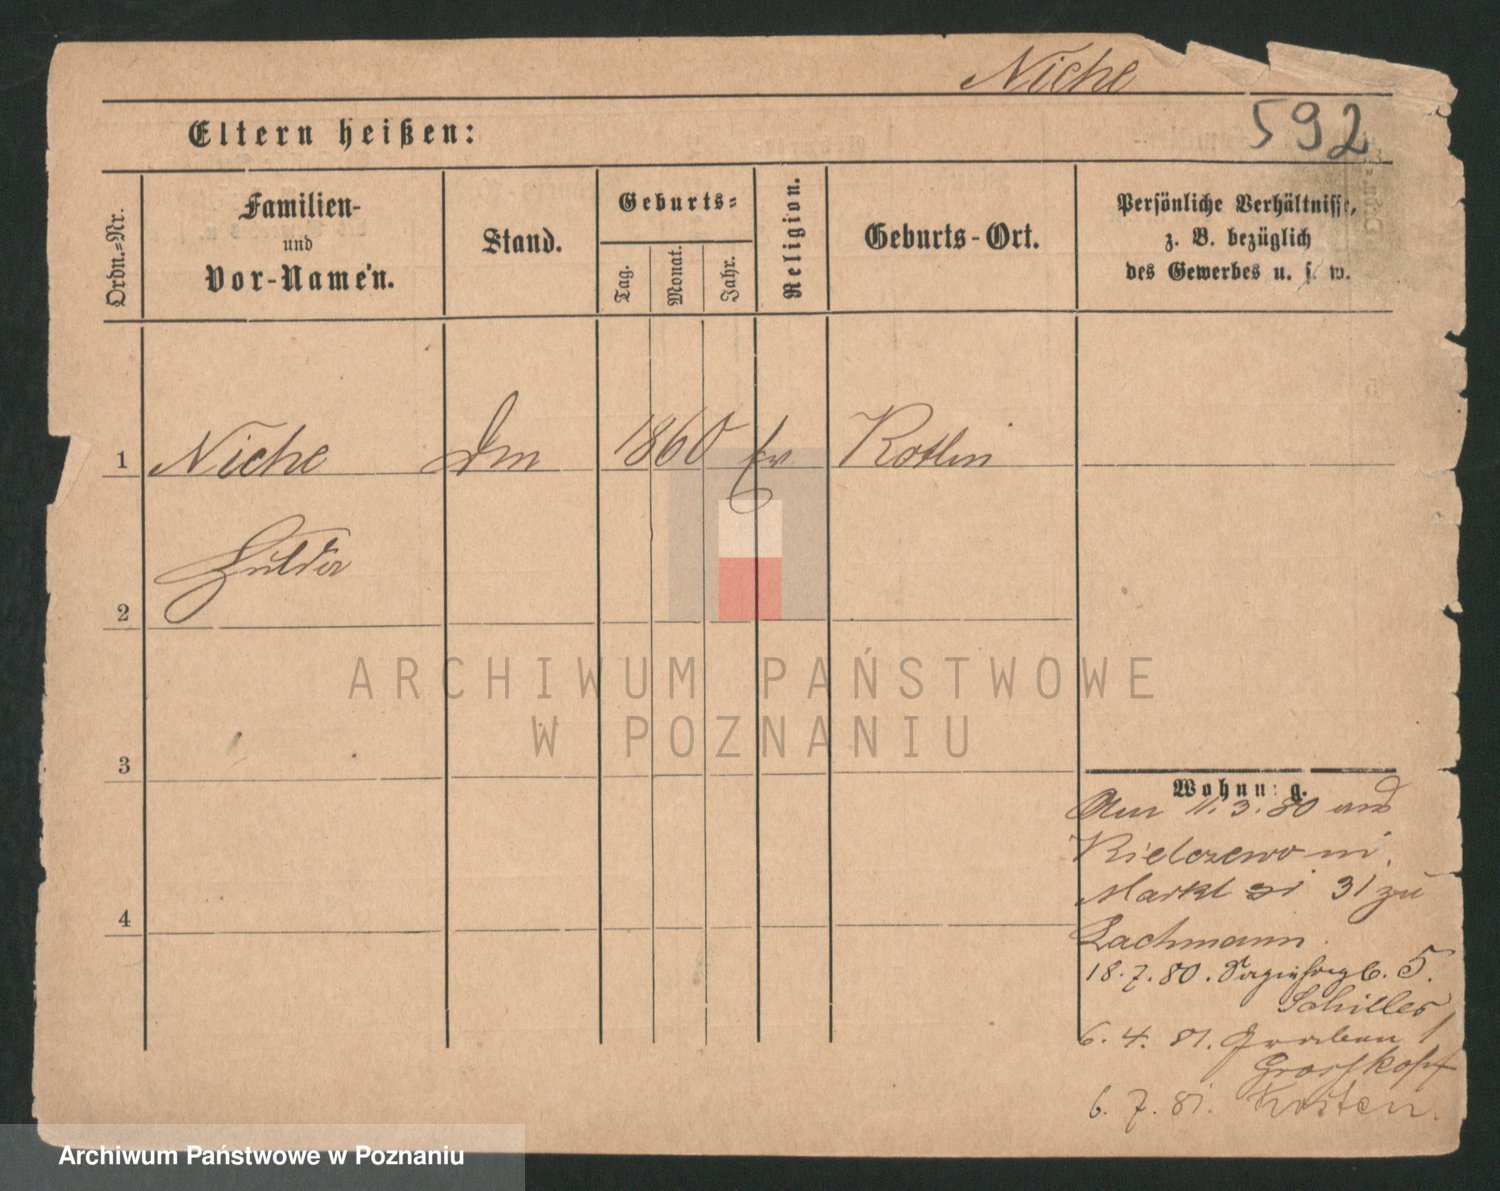 Niche
592
Eltern heißen:
Ordn.=Nr.
Familien-
und
Vor-Namen.
Stand.
Geburts=
Tag.
Monat.
Jahr.
Religion.
Geburts-Ort.
Persönliche Verhältnisse,
z. B. bezüglich
des Gewerbes u. s. w.
1 Niche 1860 Ev Kotlin
2
3
4
ARCHIWUM PAŃSTWOWE
W POZNANIU
Wohnung.
Am 11.3.80 aus
Kielczewo in
Markt 31 zu
Lachmann.
18.7.80. 5.
Schiller
6.4.81. Graben 1
Grosskopf
6.7.81. Kosten.
Archiwum Państwowe w Poznaniu